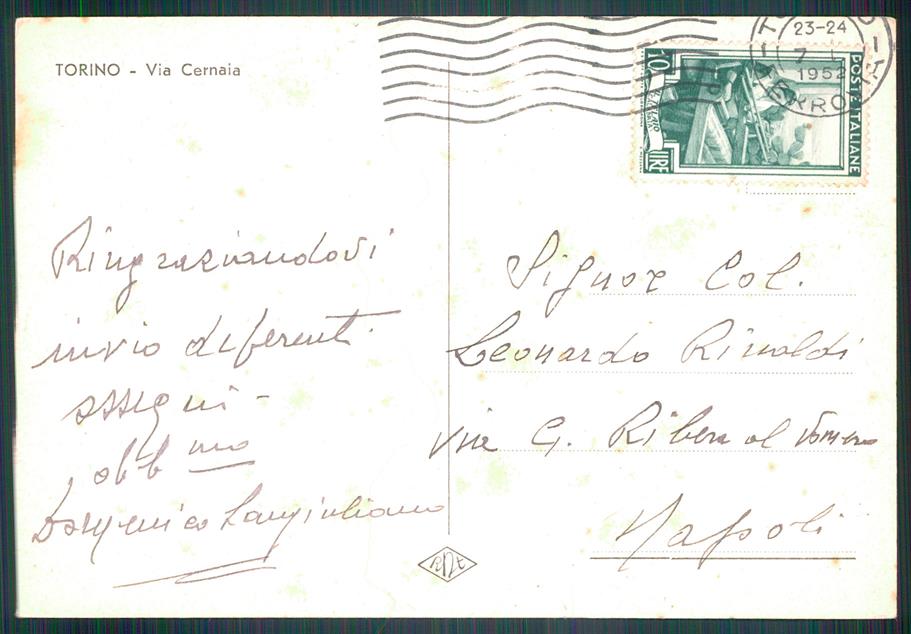 TORINO - Via Cernaia
23-24
7
1952
FERROVIA
10
LIRE
POSTE ITALIANE
Ringraziandovi
invio deferenti
ossequi -
obb mo
Domenico Sangiuliano
Signor Col.
Leonardo Rinaldi
via G. Ribera al Vomero
Napoli